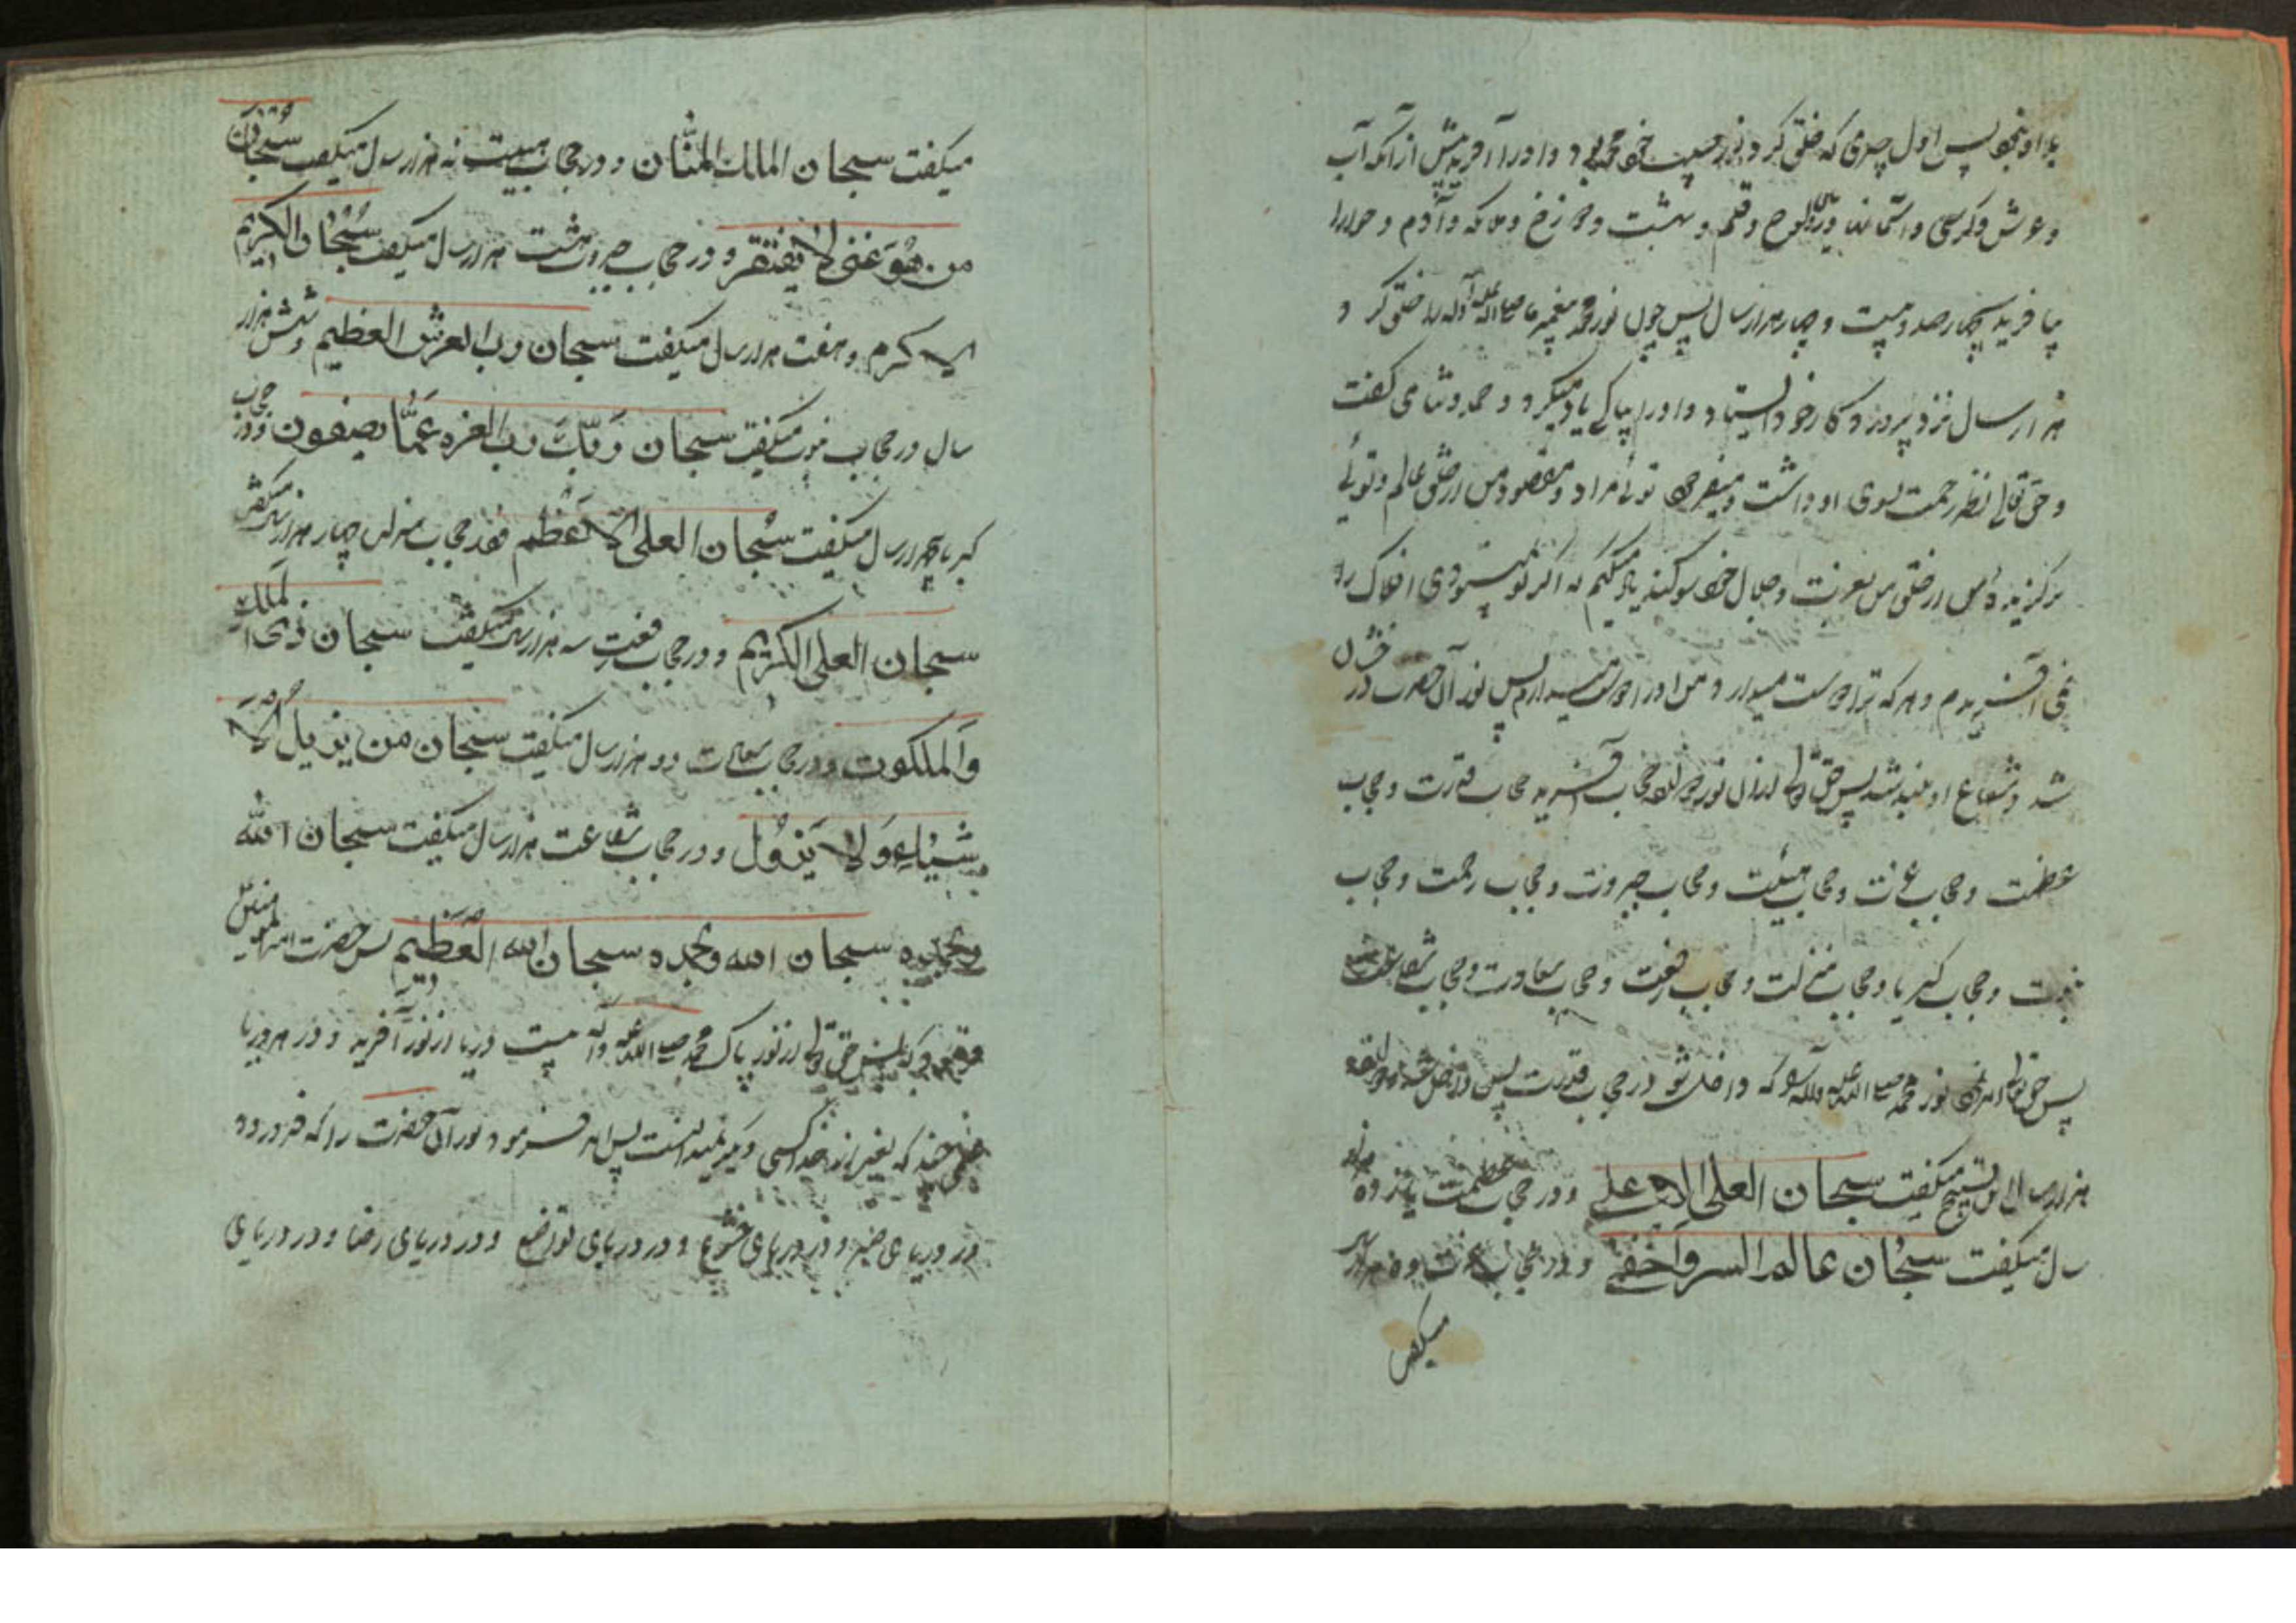 با او نبود پس اول چیزی که خلق کرد نور حبیب خود محمد بود و او را آفرید پیش از آنکه آب
و عرش و کرسی و آسمانها و زمین و لوح و قلم و بهشت و دوزخ و ملائکه و آدم و حوا را
بیافریند بچهارصد و بیست و چهار هزار سال پس چون نور محمد پیغمبر ما صلی الله علیه و آله را خلق کرد و
هزار سال نزد پروردگار خود ایستاد و او را بپاکی یاد میکرد و حمد و ثنا می گفت
و حق تعالی نظر رحمت بسوی او داشت و میفرمود توئی مراد و مقصود من از خلق عالم و توئی
برگزیده من از خلق من بعزت و جلال خود سوگند یاد میکنم که اگر تو نمیبودی افلاک را
نمی آفریدم و هر که ترا دوست میدارد من او را دوست میدارم پس نور آن حضرت درخشان
شد و شعاع او بلند شد پس حق تعالی از آن نور دوازده حجاب آفرید حجاب قدرت و حجاب
عظمت و حجاب عزت و حجاب هیبت و حجاب جبروت و حجاب رحمت و حجاب
نبوت و حجاب کبریا و حجاب منزلت و حجاب رفعت و حجاب سعادت و حجاب شفاعت
پس حق تعالی امر نمود نور محمد صلی الله علیه و آله را که داخل شو در حجاب قدرت پس داخل شد دوازده
هزار سال این تسبیح میگفت سبحان العلی الاعلی و در حجاب عظمت یازده هزار
سال میگفت سبحان عالم السر واخفی و در حجاب عزت ده هزار سال
میگفت
میگفت سبحان المالک المنان و در حجاب هیبت نه هزار سال میگفت سبحان
من هو غنی لا یفتقر و در حجاب جبروت هشت هزار سال میگفت سبحان الکریم
الاکرم و هفت هزار سال میگفت سبحان رب العرش العظیم و شش هزار
سال در حجاب نبوت میگفت سبحان ربک رب العزه عما یصفون و در حجاب
کبریا پنج هزار سال میگفت سبحان العلی الاعظم و در حجاب منزلت چهار هزار سال میگفت
سبحان العلی الکریم و در حجاب رفعت سه هزار سال میگفت سبحان ذی الملک
والملکوت و در حجاب سعادت دو هزار سال میگفت سبحان من یزیل الا
شیاء ولا یزول و در حجاب شفاعت هزار سال میگفت سبحان الله
وبحمده سبحان الله وبحمده سبحان الله العظیم پس حضرت امیرالمومنین
فرمود که پس حق تعالی از نور پاک محمد صلی الله علیه و آله بیست دریا از نور آفرید و در هر دریا
علمی چند که بغیر از خدا کسی دیگر نمیدانست پس امر فرمود نور آن حضرت را که فرو رود
در دریای صبر و در دریای خشوع و در دریای تواضع و در دریای رضا و در دریای